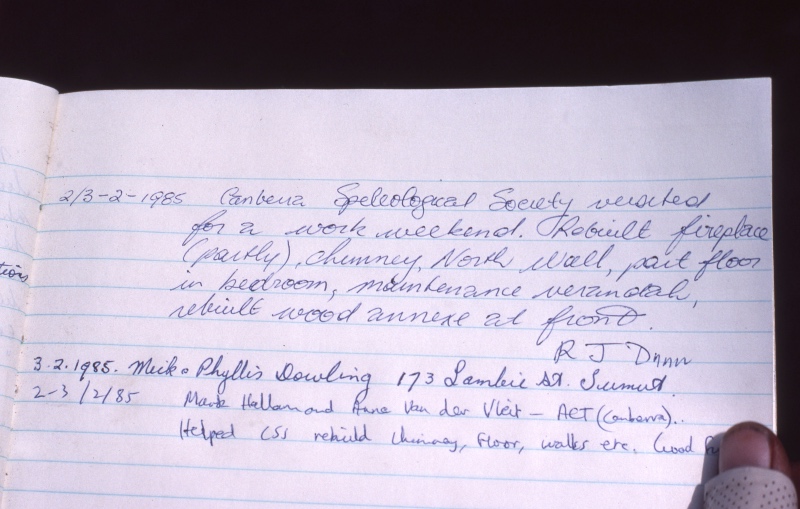 tions
2/3-2-1985 Canberra Speleological Society versited
for a work weekend. Rebuilt fireplace
(partly), chimney, North Wall, part floor
in bedroom, maintenance verandah,
rebuilt wood annexe at front.
R J Dunn
3.2.1985. Meik & Phyllis Dowling 173 Lambie St. Summit.
2-3/2/85 Mark Hallam and Anne Van der Vleit - ACT (Canberra)..
Helped CSS rebuild chimney, floor, walks etc. Good